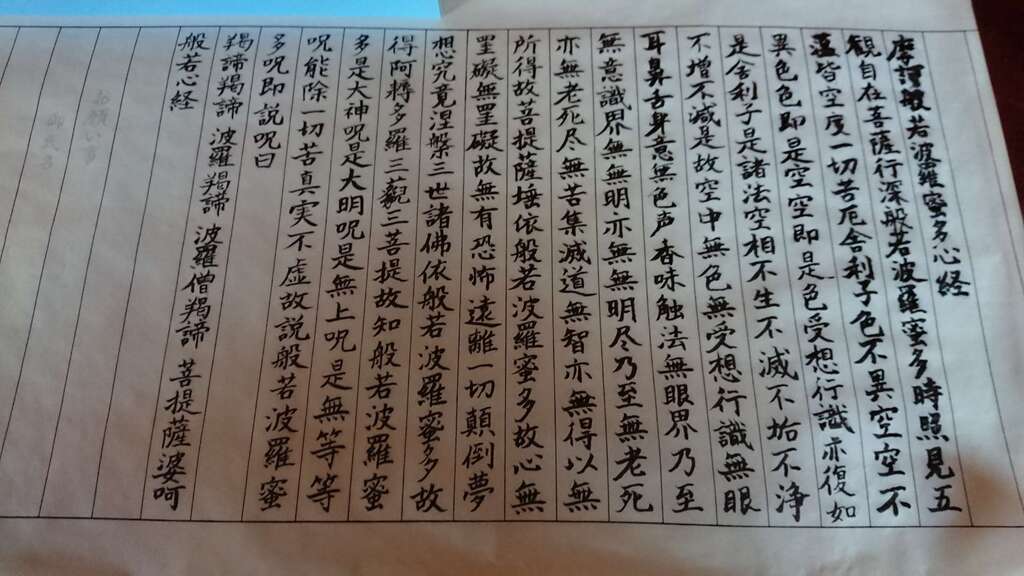 摩訶般若波羅蜜多心経
観自在菩薩行深般若波羅蜜多時照見五
蘊皆空度一切苦厄舎利子色不異空空不
異色色即是空空即是色受想行識亦復如
是舎利子是諸法空相不生不滅不垢不浄
不増不減是故空中無色無受想行識無眼
耳鼻舌身意無色声香味触法無眼界乃至
無意識界無無明亦無無明尽乃至無老死
亦無老死尽無苦集滅道無智亦無得以無
所得故菩提薩埵依般若波羅蜜多故心無
罣礙無罣礙故無有恐怖遠離一切顛倒夢
想究竟涅槃三世諸佛依般若波羅蜜多故
得阿耨多羅三藐三菩提故知般若波羅蜜
多是大神呪是大明呪是無上呪是無等等
呪能除一切苦真実不虚故説般若波羅蜜
多呪即説呪曰
羯諦羯諦 波羅羯諦 波羅僧羯諦 菩提薩婆呵
般若心経
お願い事
御氏名